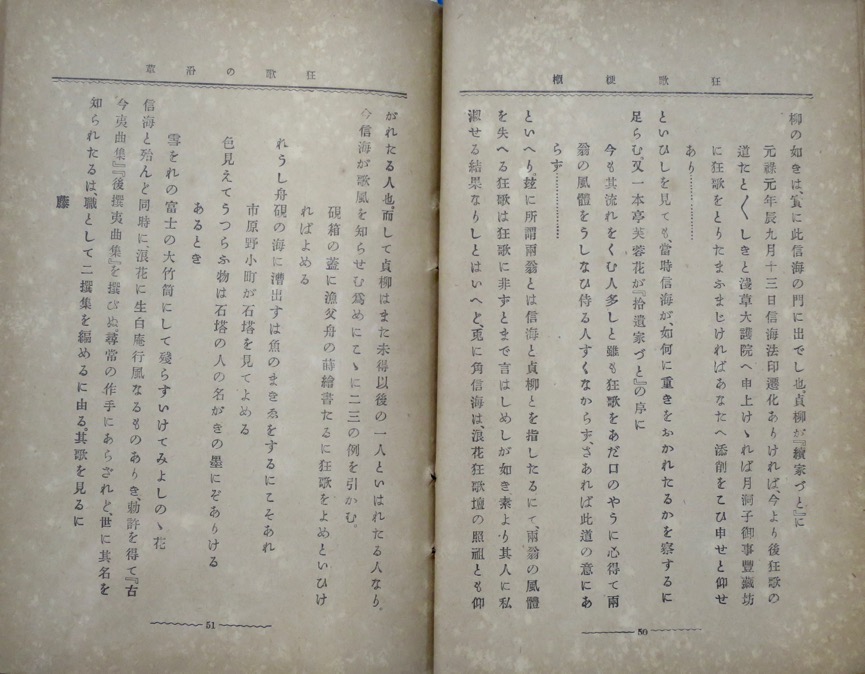 狂歌梗概
柳の如きは、實に此信海の門に出でし也。貞柳が『續家づと』に
元祿元年辰九月十三日信海法印遷化ありければ、今より後狂歌の
道たど〱しきと淺草大護院へ申上げゝれば月洞子御事豐藏坊
に狂歌をとりたまふまじければあなたへ添削をこひ申せと仰せ
あり…………
といひしを見ても、當時信海が、如何に重きをおかれたるかを察するに
足らむ。又一本亭芙蓉花が『拾遺家づと』の序に
今も其流れをくむ人多しと雖も狂歌をあだ口のやうに心得て兩
翁の風體をうしなひ侍る人すくなからず、さあれば此道の意にあ
らず…………
といへり。玆に所謂兩翁とは信海と貞柳とを指したるにて、兩翁の風體
を失へる狂歌は狂歌に非ずとまで言はしめしが如き素より其人に私
淑せる結果なりしとはいへど、兎に角信海は、浪花狂歌壇の照祖とも仰
50
狂歌の沿革
がれたる人也。而して貞柳はまた未得以後の一人といはれたる人なり。
今信海が歌風を知らせむ爲めにこゝに二三の例を引かむ。
硯箱の蓋に漁父舟の蒔繪書たるに狂歌をよめといひけ
ればよめる
れうし舟硯の海に漕出すは魚のまきゑをするにこそあれ
市原野小町が石塔を見てよめる
色見えてうつらふ物は石塔の人の名がきの墨にぞありける
あるとき
雪をれの富士の大竹筒にして殘らすいけてみよしのゝ花
信海と殆んど同時に、浪花に生白庵行風なるものありき、勅許を得て『古
今夷曲集』『後撰夷曲集』を撰びぬ。尋常の作手にあらざれど、世に其名を
知られたるは、職として二撰集を編めるに由る。其歌を見るに
藤
51